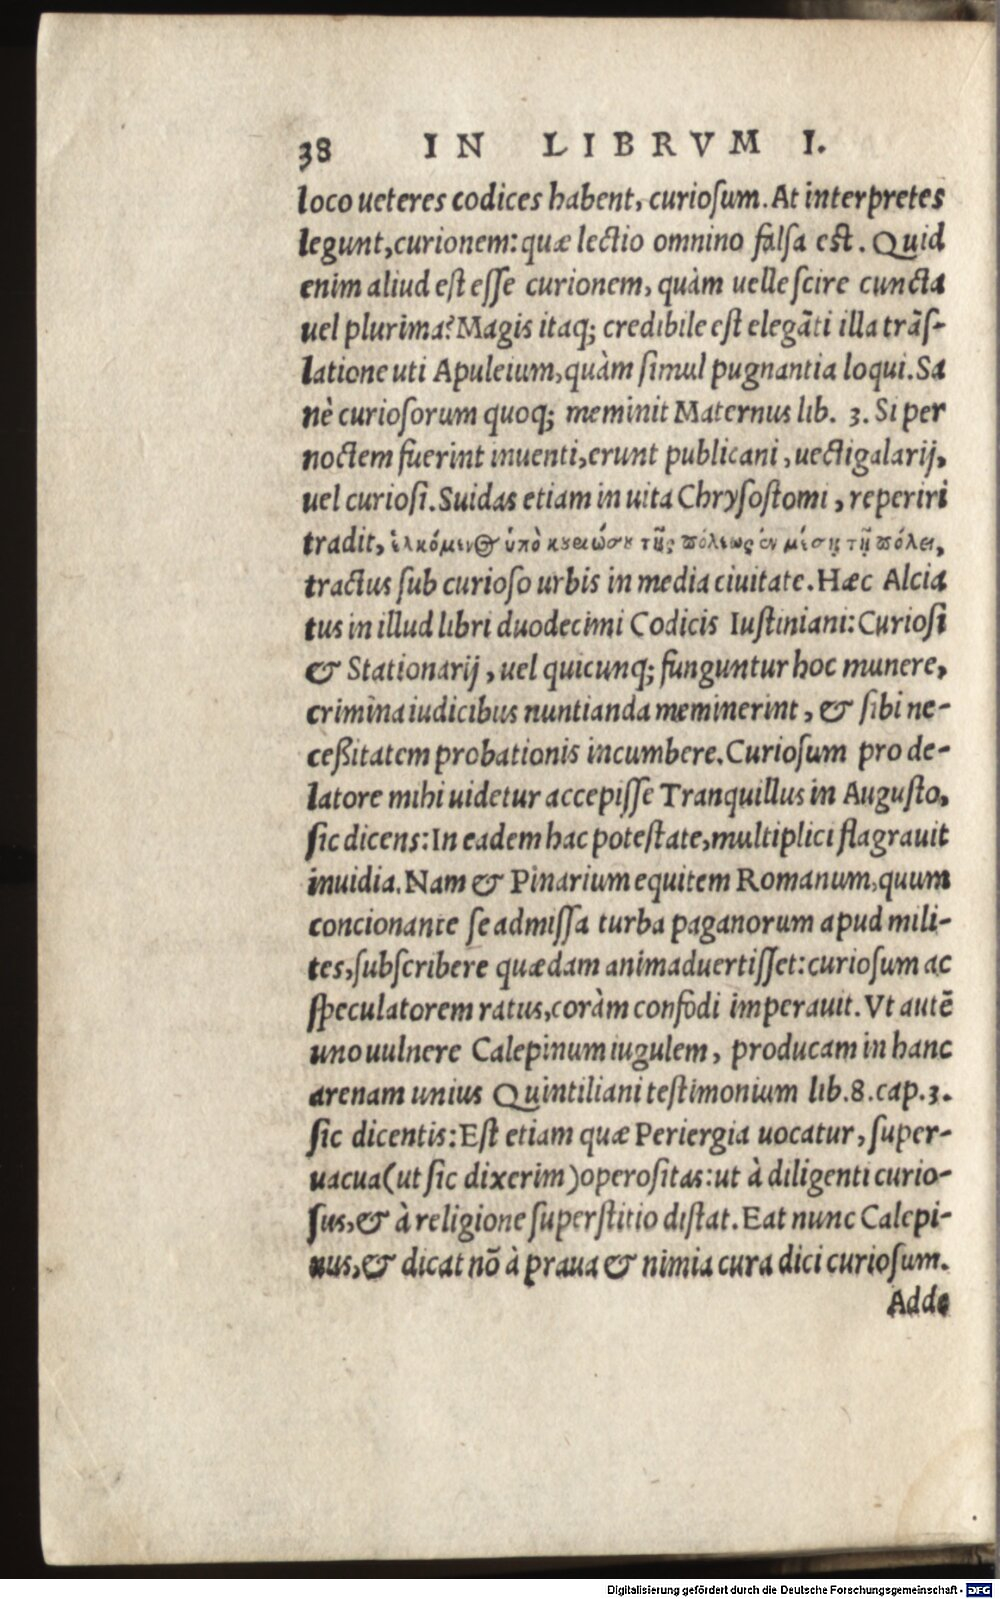 38 IN LIBRVM I.
loco ueteres codices habent, curiosum. At interpretes
legunt, curionem: quæ lectio omnino falsa est. Quid
enim aliud est esse curionem, quàm uelle scire cuncta
uel plurima? Magis itaq; credibile est elegãti illa trãs-
latione uti Apuleium, quàm simul pugnantia loqui. Sa
nè curiosorum quoq; meminit Maternus lib. 3. Si per
noctem fuerint inuenti, erunt publicani, uectigalarij,
uel curiosi. Suidas etiam in uita Chrysostomi, reperiri
tradit, ἑλκόμενος ὑπὸ κουειώσου τῆς πόλεως ἐν μέσῃ τῇ πόλει,
tractus sub curioso urbis in media ciuitate. Hæc Alcia
tus in illud libri duodecimi Codicis Iustiniani: Curiosi
& Stationarij, uel quicunq; funguntur hoc munere,
crimina iudicibus nuntianda meminerint, & sibi ne-
ceßitatem probationis incumbere. Curiosum pro de-
latore mihi uidetur accepisse Tranquillus in Augusto,
sic dicens: In eadem hac potestate, multiplici flagrauit
inuidia. Nam & Pinarium equitem Romanum, quum
concionante se admissa turba paganorum apud mili-
tes, subscribere quædam animaduertisset: curiosum ac
speculatorem ratus, coràm confodi imperauit. Vt autẽ
uno uulnere Calepinum iugulem, producam in hanc
arenam unius Quintiliani testimonium lib. 8. cap. 3.
sic dicentis: Est etiam quæ Periergia uocatur, super-
uacua (ut sic dixerim) operositas: ut à diligenti curio-
sus, & à religione superstitio distat. Eat nunc Calepi-
nus, & dicat nõ à praua & nimia cura dici curiosum.
Adde
Digitalisierung gefördert durch die Deutsche Forschungsgemeinschaft - DFG